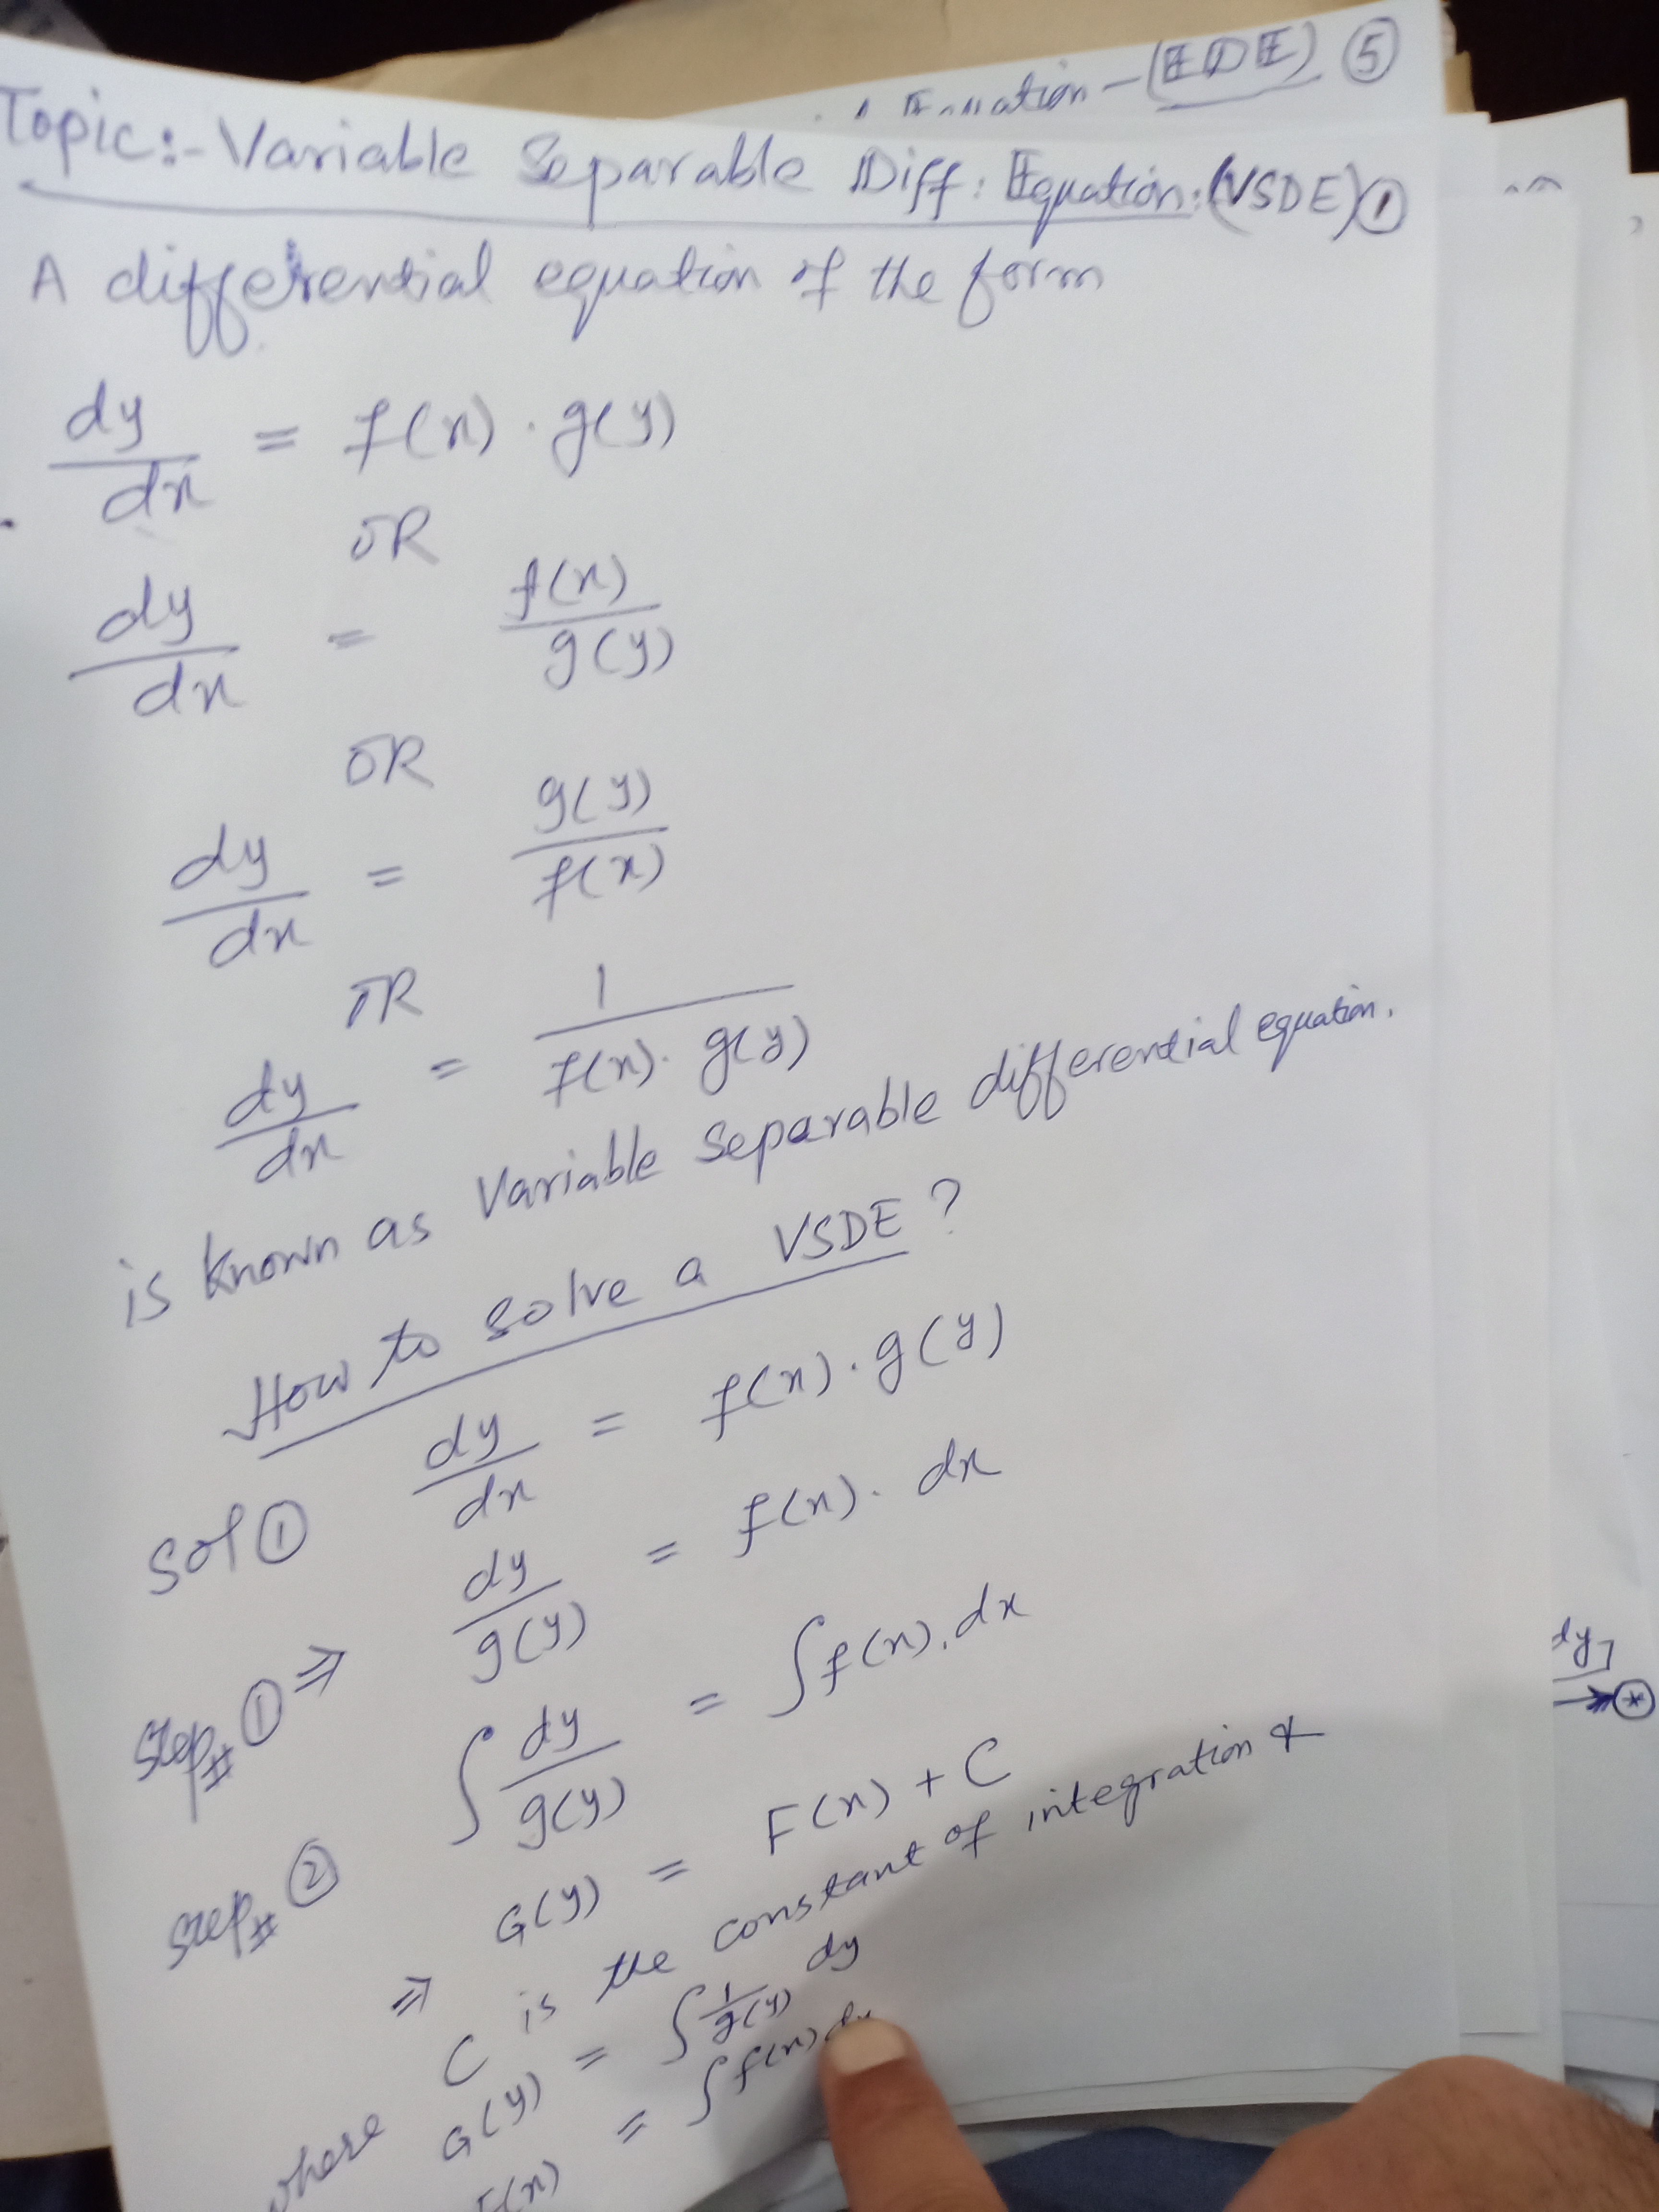 Equation - (EDE) ⑤
Topic:- Variable Separable Diff: Equation: (VSDE) ①
A differential equation of the form
dy/dx = f(x) · g(y)
OR
dy/dx = f(x)/g(y)
OR
dy/dx = g(y)/f(x)
OR
dy/dx = 1/f(x) · g(y)
is known as Variable Separable differential equation.
How to solve a VSDE ?
Sol ① dy/dx = f(x) · g(y)
Step# ① ⇒ dy/g(y) = f(x) · dx
Step# ② ∫ dy/g(y) = ∫ f(x) . dx
⇒ G(y) = F(x) + C
where C is the constant of integration &
G(y) = ∫ 1/g(y) dy
F(x) = ∫ f(x) dx
dy